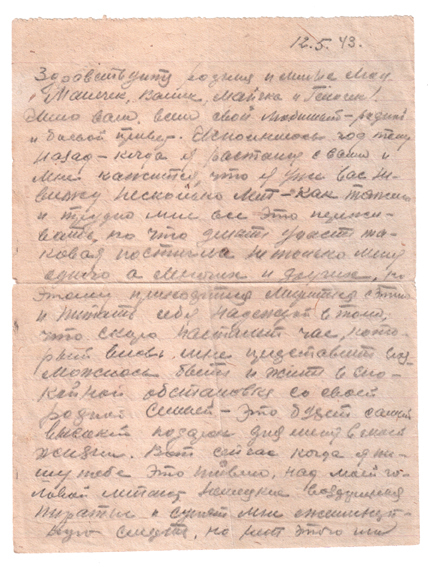 12.5.43.
Здравствуйте родные и милые мои
Манечка, Валик, Майечка и Геночка!
Шлю вам всем свой любящий - родной
и боевой привет. Исполнилось год тому
назад - когда я расстался с вами и
мне кажется, что я уже вас не
вижу несколько лет - как тяжело
и трудно мне все это пережи-
вать, но что делать участь та-
ковая постигла не только меня
одного а многих и других, по
этому приходится мириться с этим
и питать себя надеждой в том,
что скоро настанет час, кото-
рый вновь мне предоставит воз-
можность быть и жить в спо-
койной обстановке со своей
родной семьей - это будет самый
высокий подарок для меня в моей
жизни. Вот сейчас когда я пи-
шу тебе это письмо, над моей го-
ловой летают немецкие воздушные
пираты и сулят мне ежеминут-
ную смерть, но